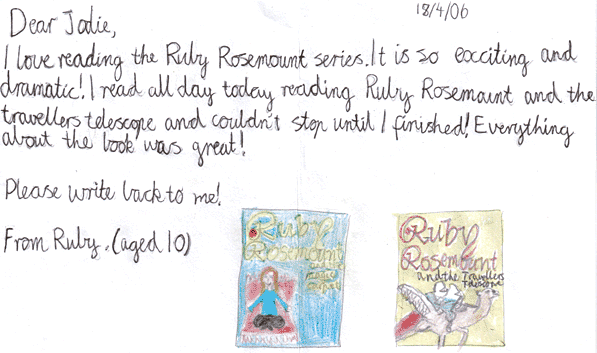 18/4/06
Dear Jodie,
I love reading the Ruby Rosemount series. It is so excciting and
dramatic! I read all day today reading Ruby Rosemount and the
travellers telescope and couldn't stop until I finished! Everything
about the book was great!
Please write back to me!
From Ruby. (aged 10)
Ruby
Rosemount
and the
Ruby
Rosemount
and the Travellers
Telescope